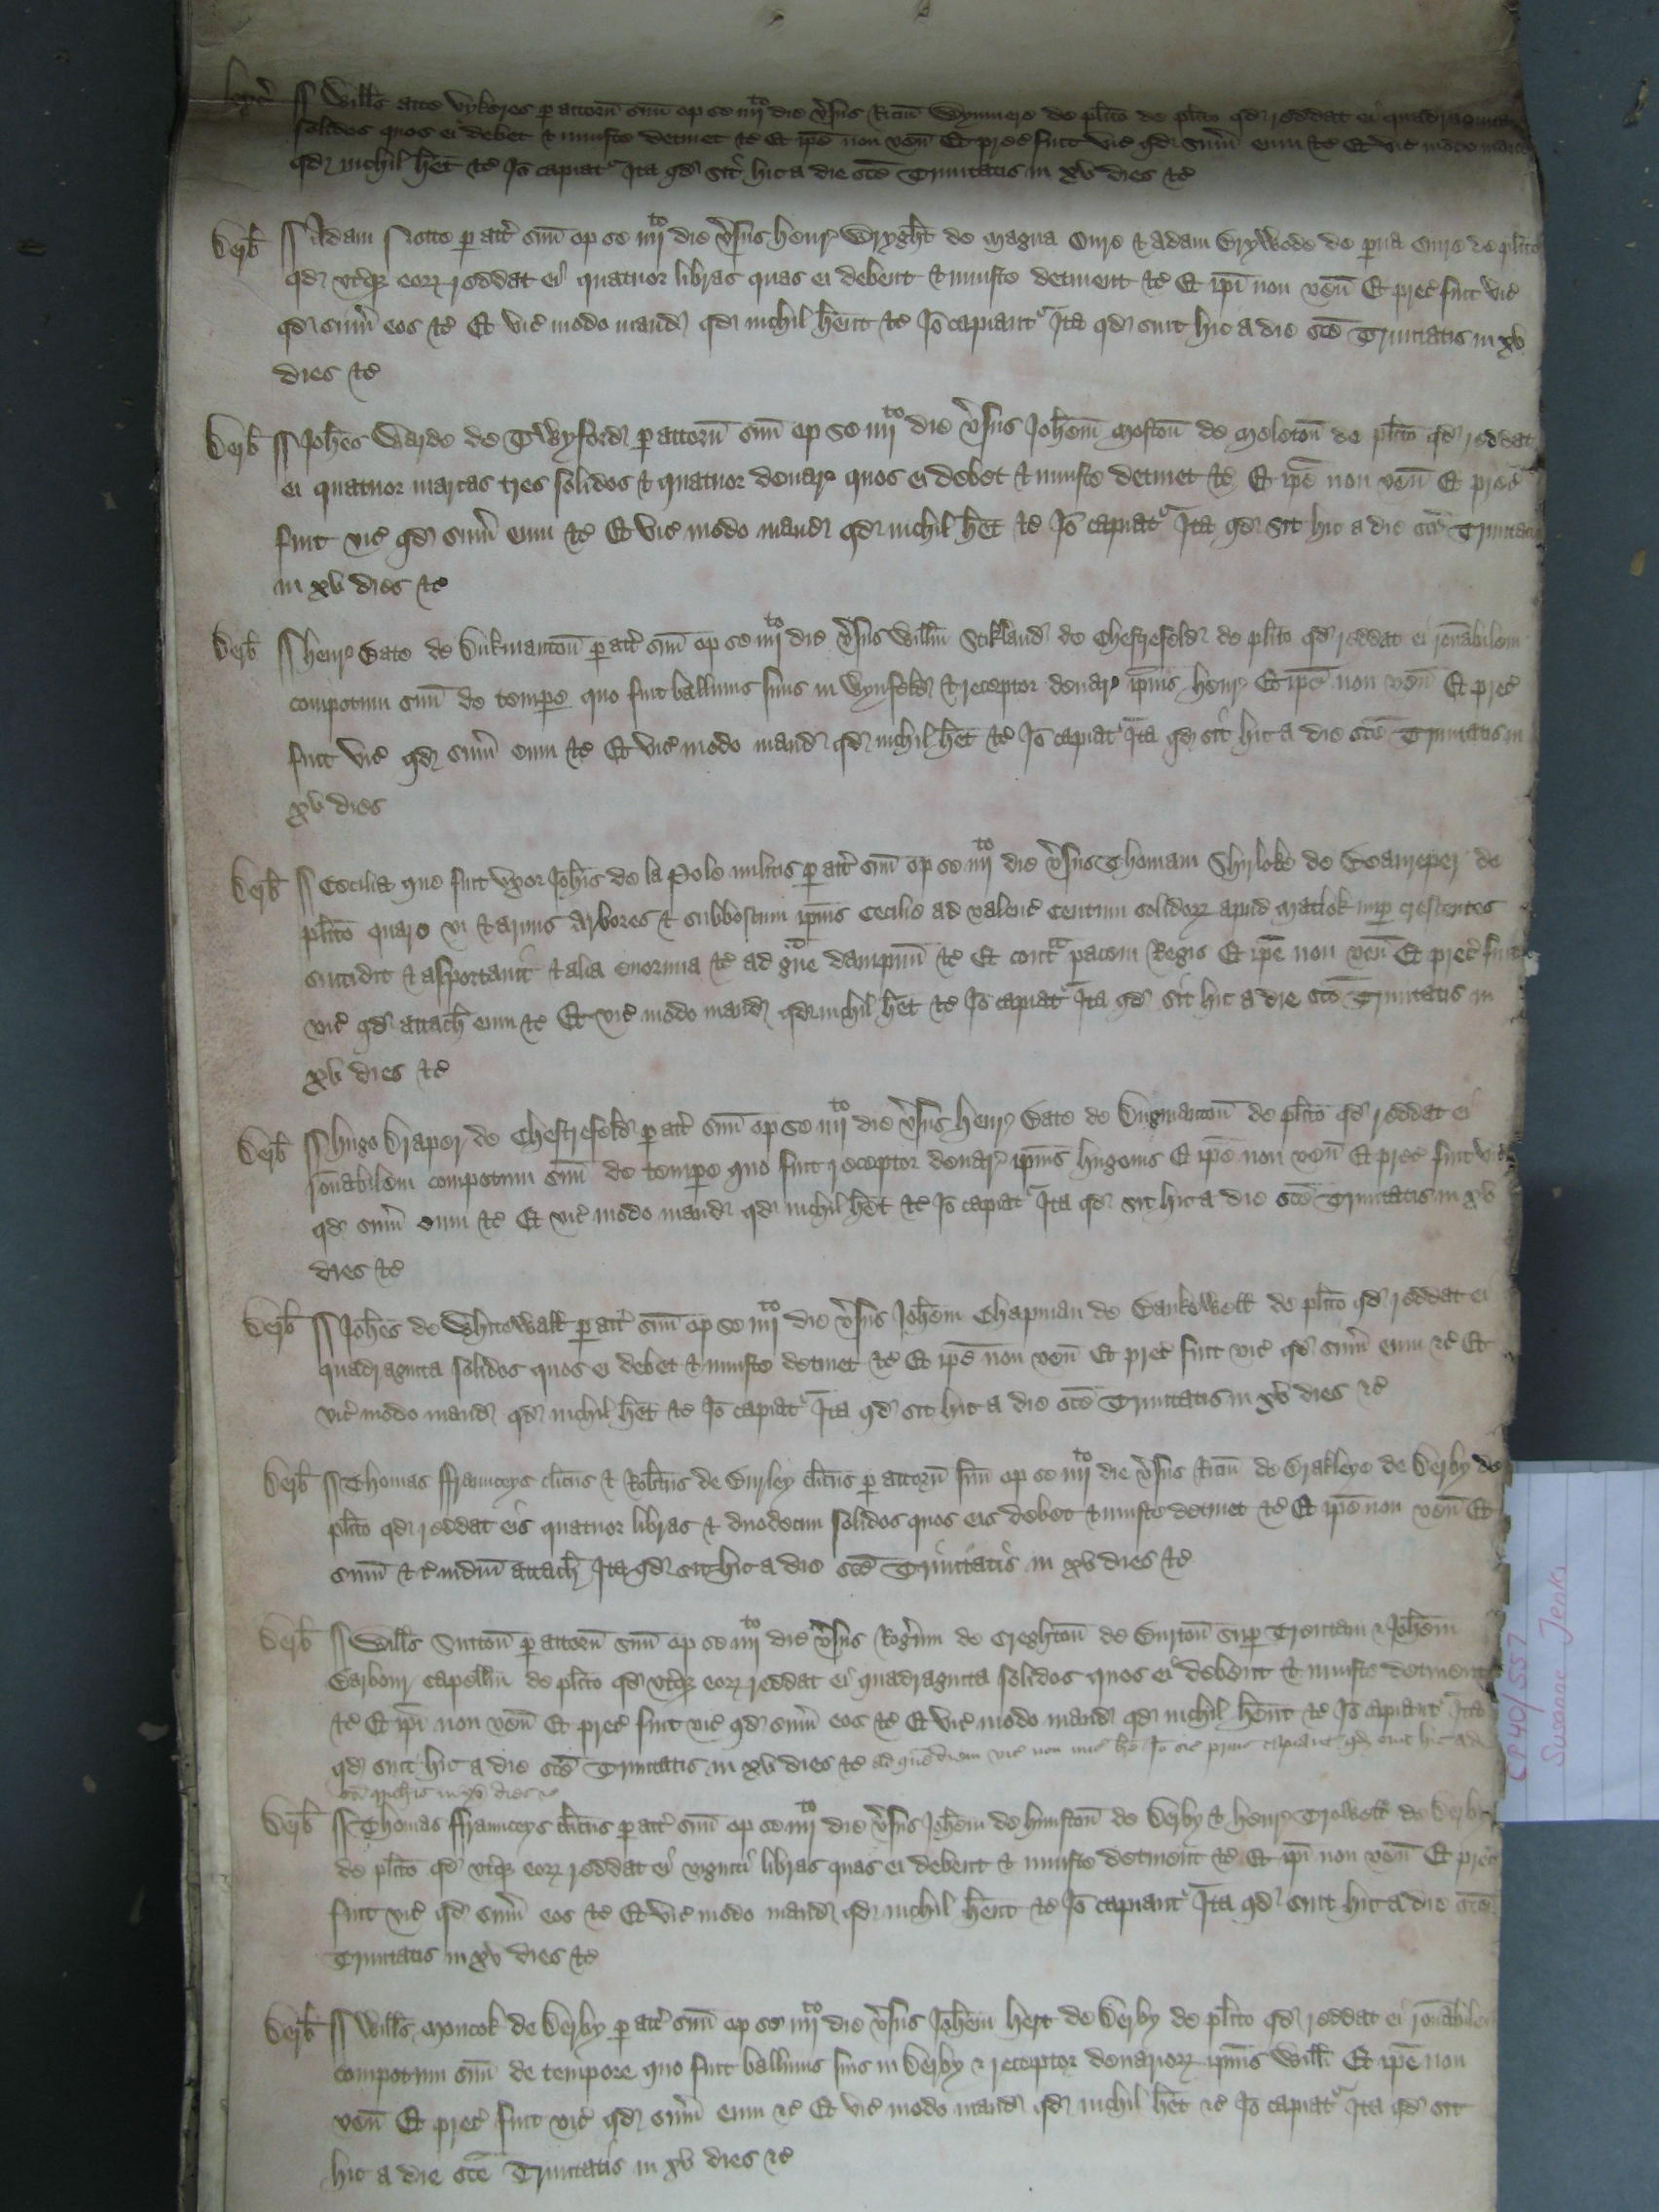 Willс atte Vykeres p attorn suu op se iiijto die vsus Ricm Wynmere de plito de plito qd reddat ei quadraginta
solidos quos ei debet & iniuste detinet &c Et ipe non ven Et prec fuit vic qd sum eum &c Et vic modo mand
qd nichil het &c Io capiat Ita qd sit hic a die sce Trinitatis in xv dies &c
Derb Adam p att suu op se iiijto die vsus Henr Wryght de magna Oure & Adam Grywode de pua Oure de plito
qd utq eor reddat ei quatuor libras quas ei debent & iniuste detinent &c Et ipi non ven Et prec fuit vic
qd sum eos &c Et vic modo mand qd nichil hent &c Io capiant Ita qd sint hic a die sce Trinitatis in xv
dies &c
Derb Johes Warde de Twyford p attorn suu op se iiijto die vsus Johem Mostou de Meletou de plito qd reddat
ei quatuor marcas tres solidos & quatuor denar quos ei debet & iniuste detinet &c Et ipe non ven Et prec
fuit vic qd sum eum &c Et vic modo mand qd nichil het &c Io capiat Ita qd sit hic a die sce Trinitatis
in xv dies &c
Derb Henr Bate de Dukmantou p att suu op se iiijto die vsus Willm Stkland de Chestrefeld de plito qd reddat ei ronabilem
compotum suu de tempe quo fuit ballivus suus in Wynfeld & receptor denar ipius Henr Et ipe non ven Et prec
fuit vic qd sum eum &c Et vic modo mand qd nichil het &c Io capiat Ita qd sit hic a die sce Trinitatis in
xv dies
Derb Cecilia que fuit uxor Johis de la Pole militis p att suu op se iiijto die vsus Thomam Shyrloke de Beaureper de
plito quare vi & armis Arbores & subboscum ipius Cecilie ad valenc centum solidor apud Matlok nup crescentes
succidit & asportavit & alia enormia &c ad gue dampnu &c Et contra pacem Regis Et ipe non ven Et prec fuit
vic qd attach eum &c Et vic modo mand qd nichil het &c Io capiat Ita qd sit hic a die sce Trinitatis in
xv dies &c
Derb Hugo Draper de Chestrefeld p att suu op se iiijto die vsus Henr Bate de Dugmantou de plito qd reddat ei
ronabilem compotum suu de tempe quo fuit receptor denar ipius Hugonis Et ipe non ven Et prec fuit vic
qd sum eum &c Et vic modo mand qd nichil het &c Io capiat Ita qd sit hic a die sce Trinitatis in xv
dies &c
Derb Johes de Whitewall p att suu op se iiijto die vsus Johem Chapman de Bankewell de plito qd reddat ei
quadraginta solidos quos ei debet & iniuste detinet &c Et ipe non ven Et prec fuit vic qd sum eum &c Et
vic modo mand qd nichil het &c Io capiat Ita qd sit hic a die sce Trinitatis in xv dies &c
Derb Thomas Fraunceys clicus & Robtus de Burley clicus p attorn suu op se iiijto die vsus Ricm de Brakleye de Derby de
plito qd reddat eis quatuor libras & duodecim solidos quos eis debet & iniuste detinet &c Et ipe non ven Et
sum &c iudm attach Ita qd sit hic a die sce Trinitatis in xv dies &c
Derb Wills Suttou p attorn suu op se iiijto die vsus Rogum de Creghtou de Burtou sup Trentam & Johem
Barbour capellm de plito qd utq eor reddat ei quadraginta solidos quos ei debent & iniuste detinent
&c Et ipi non ven Et prec fuit vic qd sum eos &c Et vic modo mand qd nichil hent &c Io capiant Ita
qd sint hic a die sce Trinitatis in xv dies &c ad que diem vic non mis bre Io sic prius capiant qd sint hic a die
sci Michis in xv dies &c
Derb Thomas Fraunceys clicus p att suu op se iiijto die vsus Johem de Hunstou de Derby & Henr Trowell de Derby
de plito qd utq eor reddat ei viginti libras quas ei debent & iniuste detinent &c Et ipi non ven Et prec
fuit vic qd sum eos &c Et vic modo mand qd nichil hent &c Io capiant Ita qd sint hic a die sce
Trinitatis in xv dies &c
Derb Wills Moncok de Derby p att suu op se iiijto die vsus Johem Hert de Derby de plito qd reddat ei ronabilem
compotum suu de tempore quo fuit ballivus suus in Derby & receptor denarior ipius Willi Et ipe non
ven Et prec fuit vic qd sum eum &c Et vic modo mand qd nichil het &c Io capiat Ita qd sit
hic a die sce Trinitatis in xv dies &c
CP40/557
Susanne Jenks